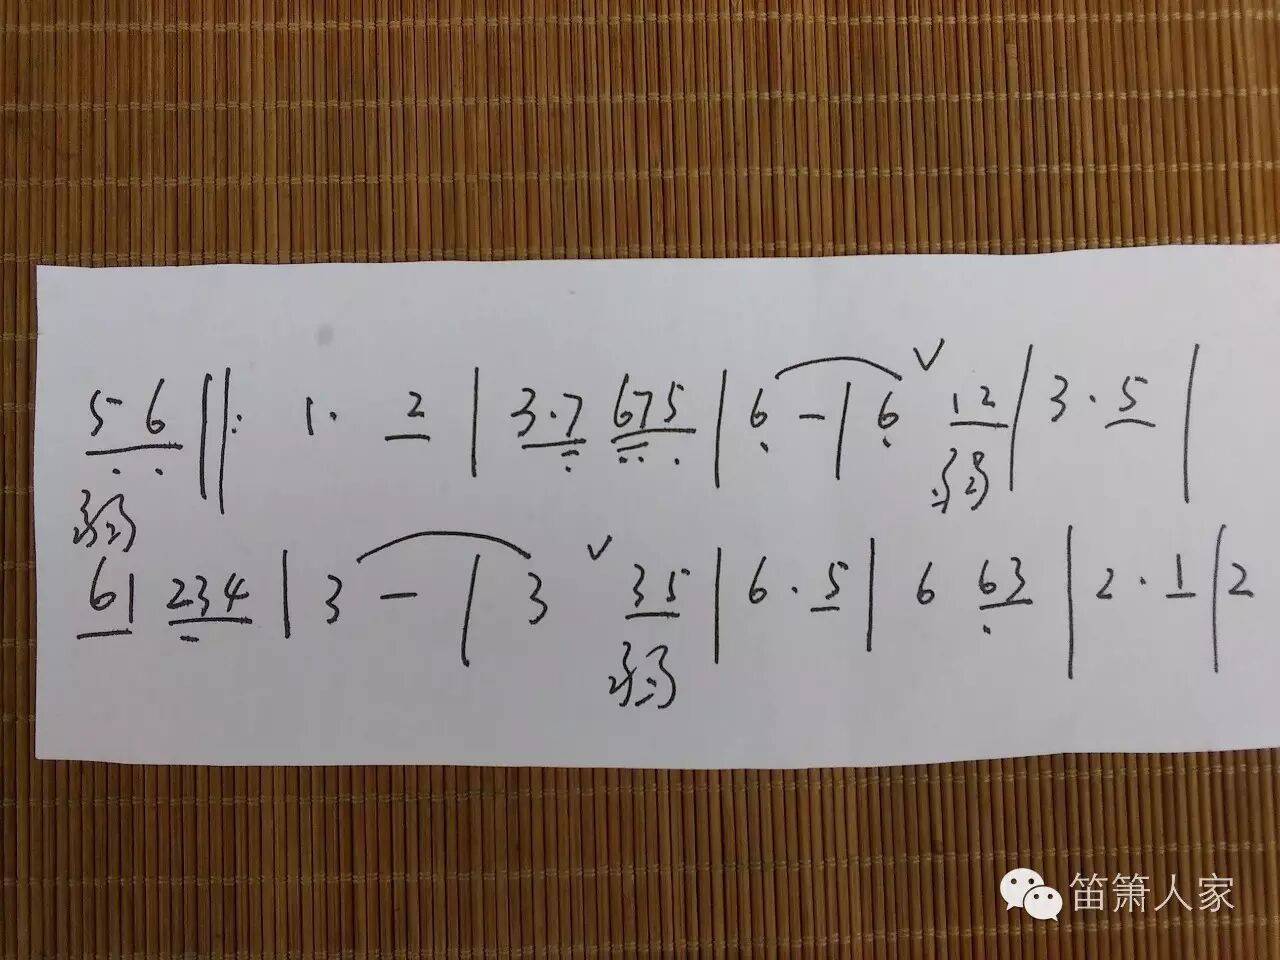 5 6 ‖: 1· 2 | 3·7 675 | 6 – | 6 ∨ 12 | 3·5 |
弱 弱
61 234 | 3 – | 3 ∨ 35 | 6·5 | 6 63 | 2·1 | 2
弱
笛箫人家